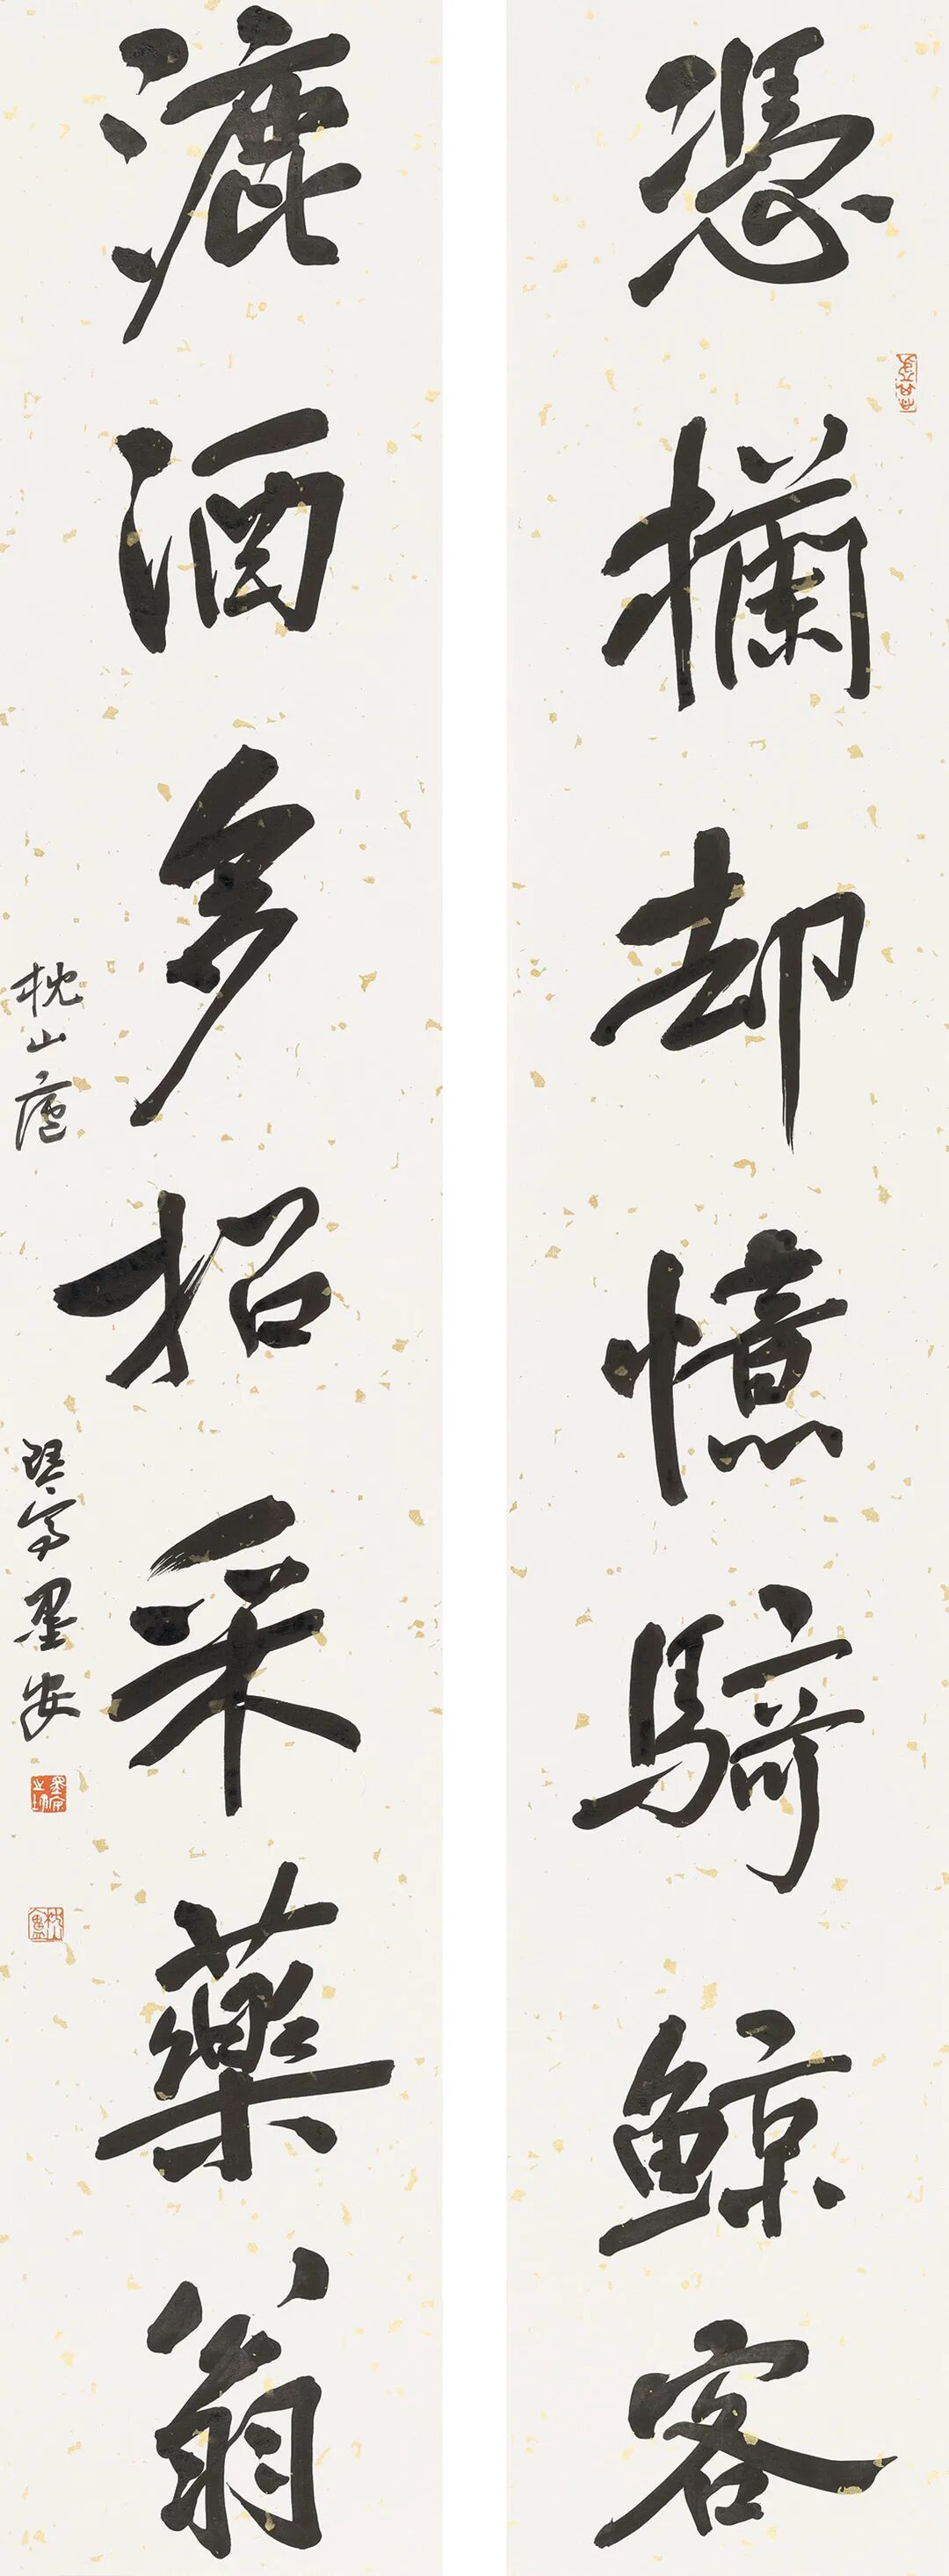 憑欄却憶騎鯨客
漉酒多招采藥翁
枕山廬
墨安